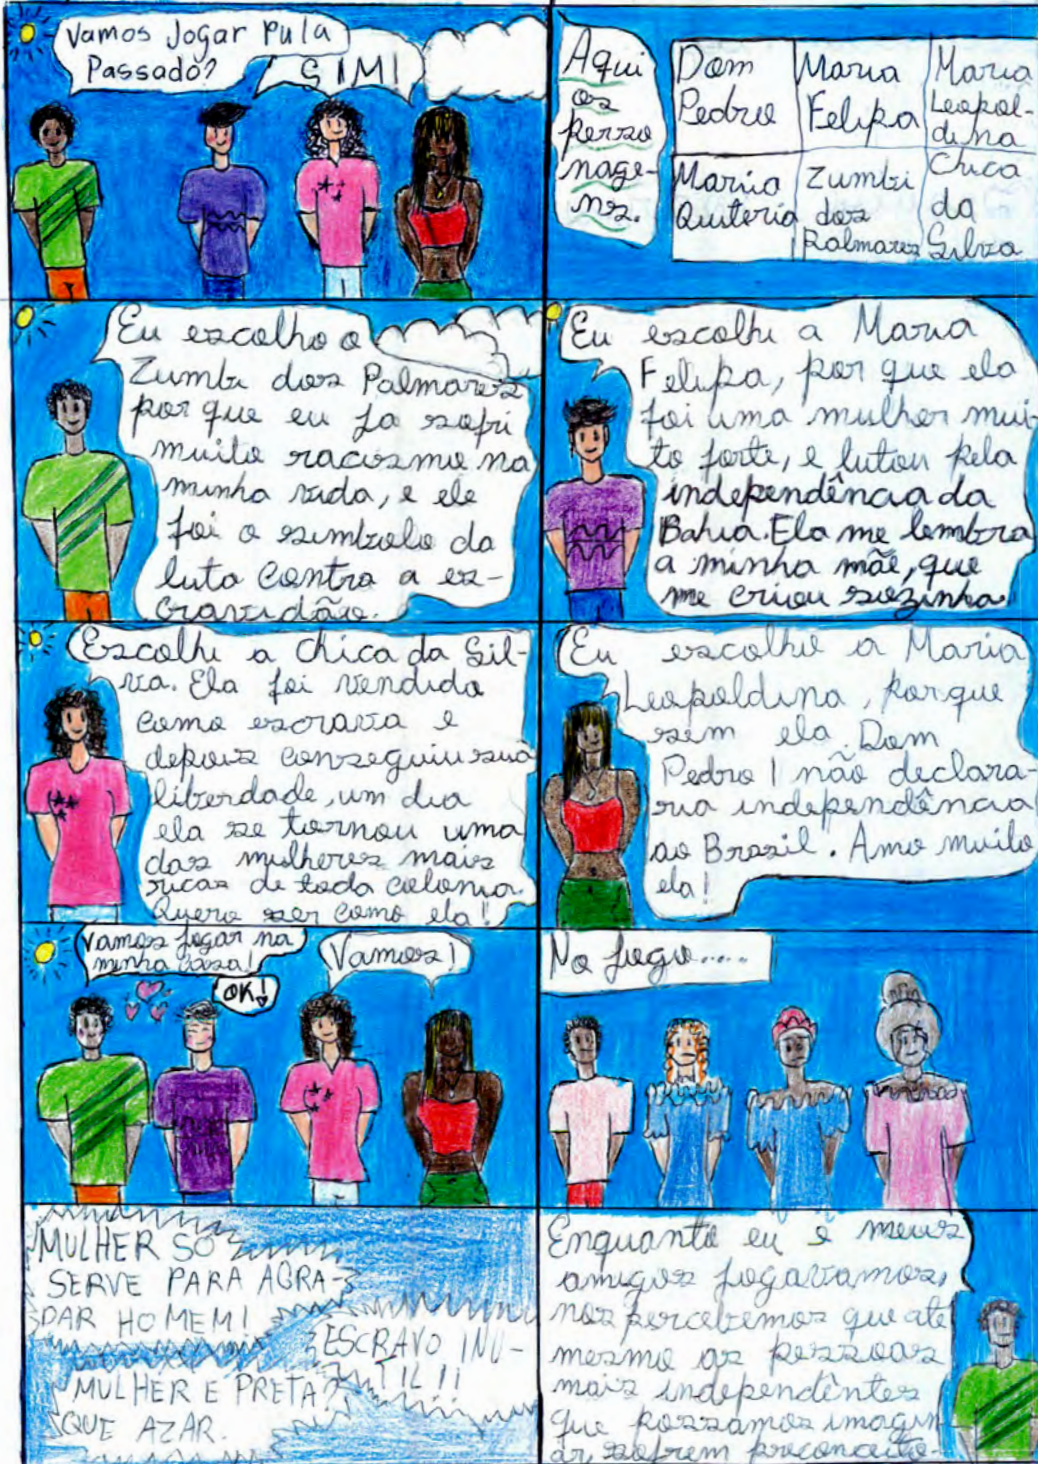 Vamos Jogar Pula
Passado?
SIM!
Aqui
os
perso
nage-
ns.
Dom
Pedro
Maria
Felipa
Maria
Leopol-
dina
Maria
Quiteria
Zumbi
dos
Palmares
Chica
da
Silva
Eu escolho o
Zumbi dos Palmares
por que eu ja sofri
muito racismo na
minha vida, e ele
foi o simbolo da
luta contra a es-
cravidão.
Eu escolhi a Maria
Felipa, por que ela
foi uma mulher mui-
to forte, e lutou pela
independência da
Bahia. Ela me lembra
a minha mãe, que
me criou sozinha.
Escolhi a Chica da Sil-
va. Ela foi vendida
como escrava e
depois conseguiu sua
liberdade, um dia
ela se tornou uma
das mulheres mais
ricas de toda colonia.
Quero ser como ela!
Eu escolhi a Maria
Leopoldina, porque
sem ela Dom
Pedro I não declara-
ria independência
ao Brasil. Amo muito
ela!
Vamos jogar na
minha casa!
OK!
Vamos!
No jogo.....
MULHER SÓ
SERVE PARA AGRA-
DAR HOMEM!
ESCRAVO INU-
TIL!!
MULHER E PRETA?
QUE AZAR.
Enquanto eu e meus
amigos jogavamos,
nos percebemos que até
mesmo as pessoas
mais independêntes
que possamos imagin
ar, sofrem preconceito.